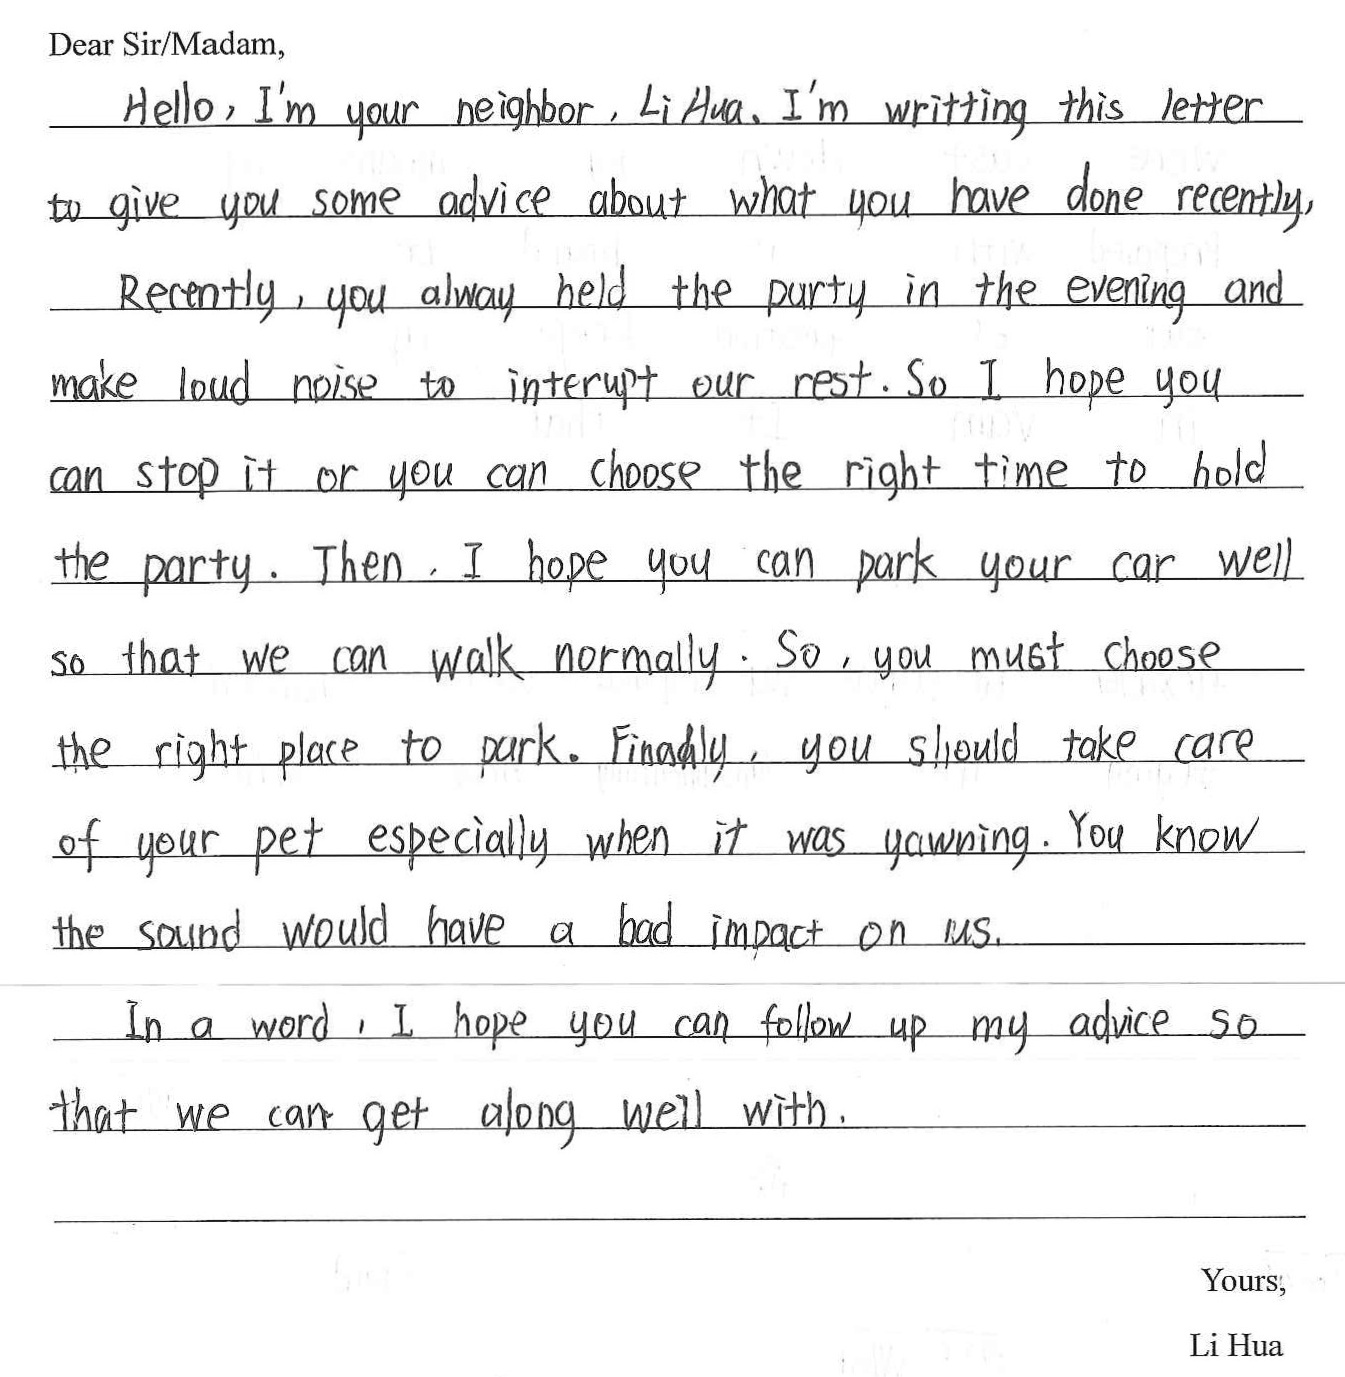 Dear Sir/Madam,
Hello, I'm your neighbor, Li Hua. I'm writting this letter
to give you some advice about what you have done recently,
Recently, you alway held the party in the evening and
make loud noise to interupt our rest. So I hope you
can stop it or you can choose the right time to hold
the party. Then, I hope you can park your car well
so that we can walk normally. So, you must choose
the right place to park. Finally, you should take care
of your pet especially when it was yawning. You know
the sound would have a bad impact on us.
In a word, I hope you can follow up my advice so
that we can get along well with.
Yours,
Li Hua